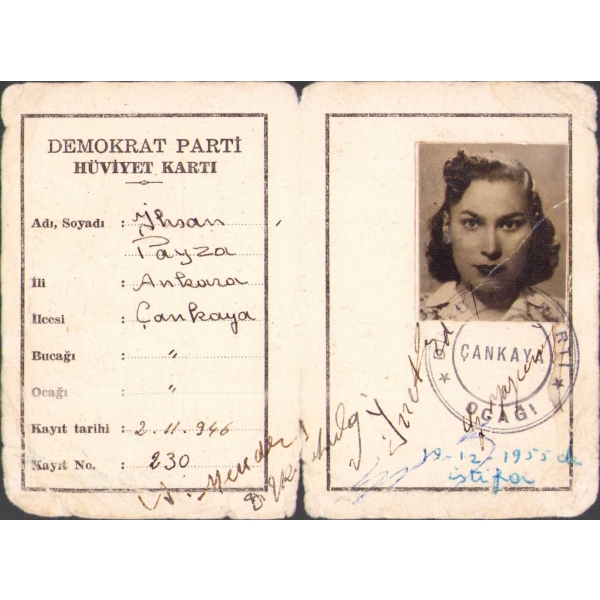 DEMOKRAT PARTİ
HÜVİYET KARTI
Adı, Soyadı : İhsan
Payza
İli : Ankara
İlçesi : Çankaya
Bucağı : "
Ocağı : "
Kayıt tarihi : 2.11.946
Kayıt No. : 230
ÇANKAYA
OCAĞI
19-12-1955 de
istifa